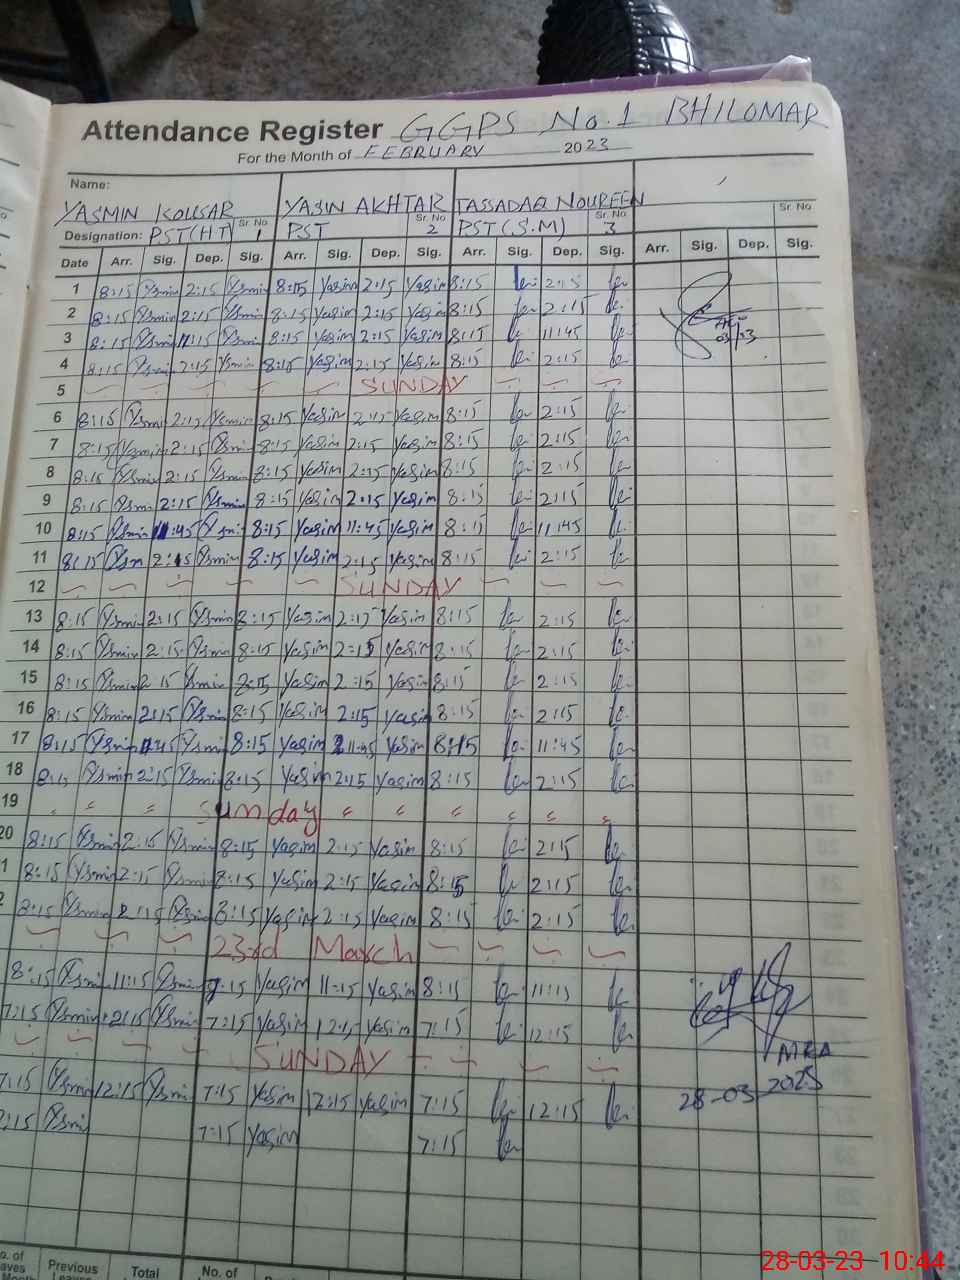 Attendance Register GGPS No.1 BHILOMAR
For the Month of FEBRUARY 2023
Name:
YASMIN KOUSAR YASIN AKHTAR TASSADAQ NOUREEN
Sr. No. 1 Sr. No. 2 Sr. No. 3 Sr. No.
Designation: PST(HT) PST PST(S.M)
Date Arr. Sig. Dep. Sig. Arr. Sig. Dep. Sig. Arr. Sig. Dep. Sig. Arr. Sig. Dep. Sig.
1 8:15 Ysmin 2:15 Ysmin 8:15 Yasim 2:15 Yasim 8:15 2:15
2 8:15 Ysmin 2:15 Ysmin 8:15 Yasim 2:15 Yasim 8:15 2:15
3 8:15 Ysmin 11:15 Ysmin 8:15 Yasim 2:15 Yasim 8:15 11:45
4 8:15 Ysmin 2:15 Ysmin 8:15 Yasim 2:15 Yasim 8:15 2:15
5 SUNDAY
6 8:15 Ysmin 2:15 Ysmin 8:15 Yasim 2:15 Yasim 8:15 2:15
7 8:15 Ysmin 2:15 Ysmin 8:15 Yasim 2:15 Yasim 8:15 2:15
8 8:15 Ysmin 2:15 Ysmin 8:15 Yasim 2:15 Yasim 8:15 2:15
9 8:15 Ysmin 2:15 Ysmin 8:15 Yasim 2:15 Yasim 8:15 2:15
10 8:15 Ysmin 11:45 Ysmin 8:15 Yasim 11:45 Yasim 8:15 11:45
11 8:15 Ysm 2:15 Ysmin 8:15 Yasim 2:15 Yasim 8:15 2:15
12 SUNDAY
13 8:15 Ysmin 2:15 Ysmin 8:15 Yasim 2:15 Yasim 8:15 2:15
14 8:15 Ysmin 2:15 Ysmin 8:15 Yasim 2:15 Yasim 8:15 2:15
15 8:15 Ysmin 2:15 Ysmin 8:15 Yasim 2:15 Yasim 8:15 2:15
16 8:15 Ysmin 2:15 Ysmin 8:15 Yasim 2:15 Yasim 8:15 2:15
17 8:15 Ysmin 11:45 Ysmin 8:15 Yasim 11:45 Yasim 8:15 11:45
18 8:15 Ysmin 2:15 Ysmin 8:15 Yasim 2:15 Yasim 8:15 2:15
19 Sunday
20 8:15 Ysmin 2:15 Ysmin 8:15 Yasim 2:15 Yasim 8:15 2:15
1 8:15 Ysmin 2:15 Ysmin 8:15 Yasim 2:15 Yasim 8:15 2:15
2 8:15 Ysmin 2:15 Ysmin 8:15 Yasim 2:15 Yasim 8:15 2:15
23rd March
8:15 Ysmin 11:15 Ysmin 8:15 Yasim 11:15 Yasim 8:15 11:15
7:15 Ysmin 12:15 Ysmin 7:15 Yasim 12:15 Yasim 7:15 12:15
SUNDAY
MRA
7:15 Ysmin 12:15 Ysmin 7:15 Yasim 12:15 Yasim 7:15 12:15
28-03-2023
7:15 Ysmi 7:15 Yasim 7:15
Previous
Total
No. of
28-03-23 10:44